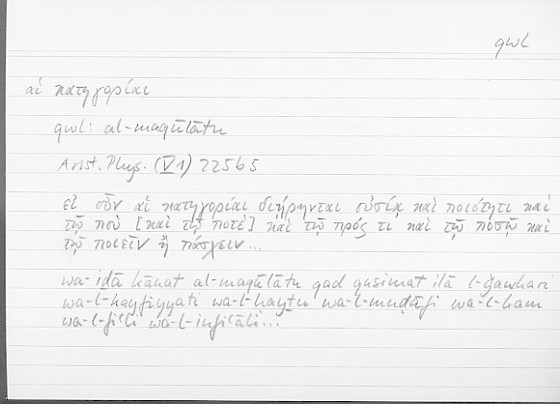 qwl
αἱ κατηγορίαι
qwl: al-maqūlātu
Arist. Phys. (V1) 225b5
εἰ οὖν αἱ κατηγορίαι διῄρηνται οὐσίᾳ καὶ ποιότητι καὶ
τῷ ποὺ [καὶ τῷ ποτὲ] καὶ τῷ πρός τι καὶ τῷ ποσῷ καὶ
τῷ ποιεῖν ἢ πάσχειν...
wa-iḏā kānat al-maqūlātu qad qusimat ilā l-ǧawhari
wa-l-kayfiyyati wa-l-haytu wa-l-muḍāfi wa-l-kam
wa-l-fiʿli wa-l-infiʿāli...